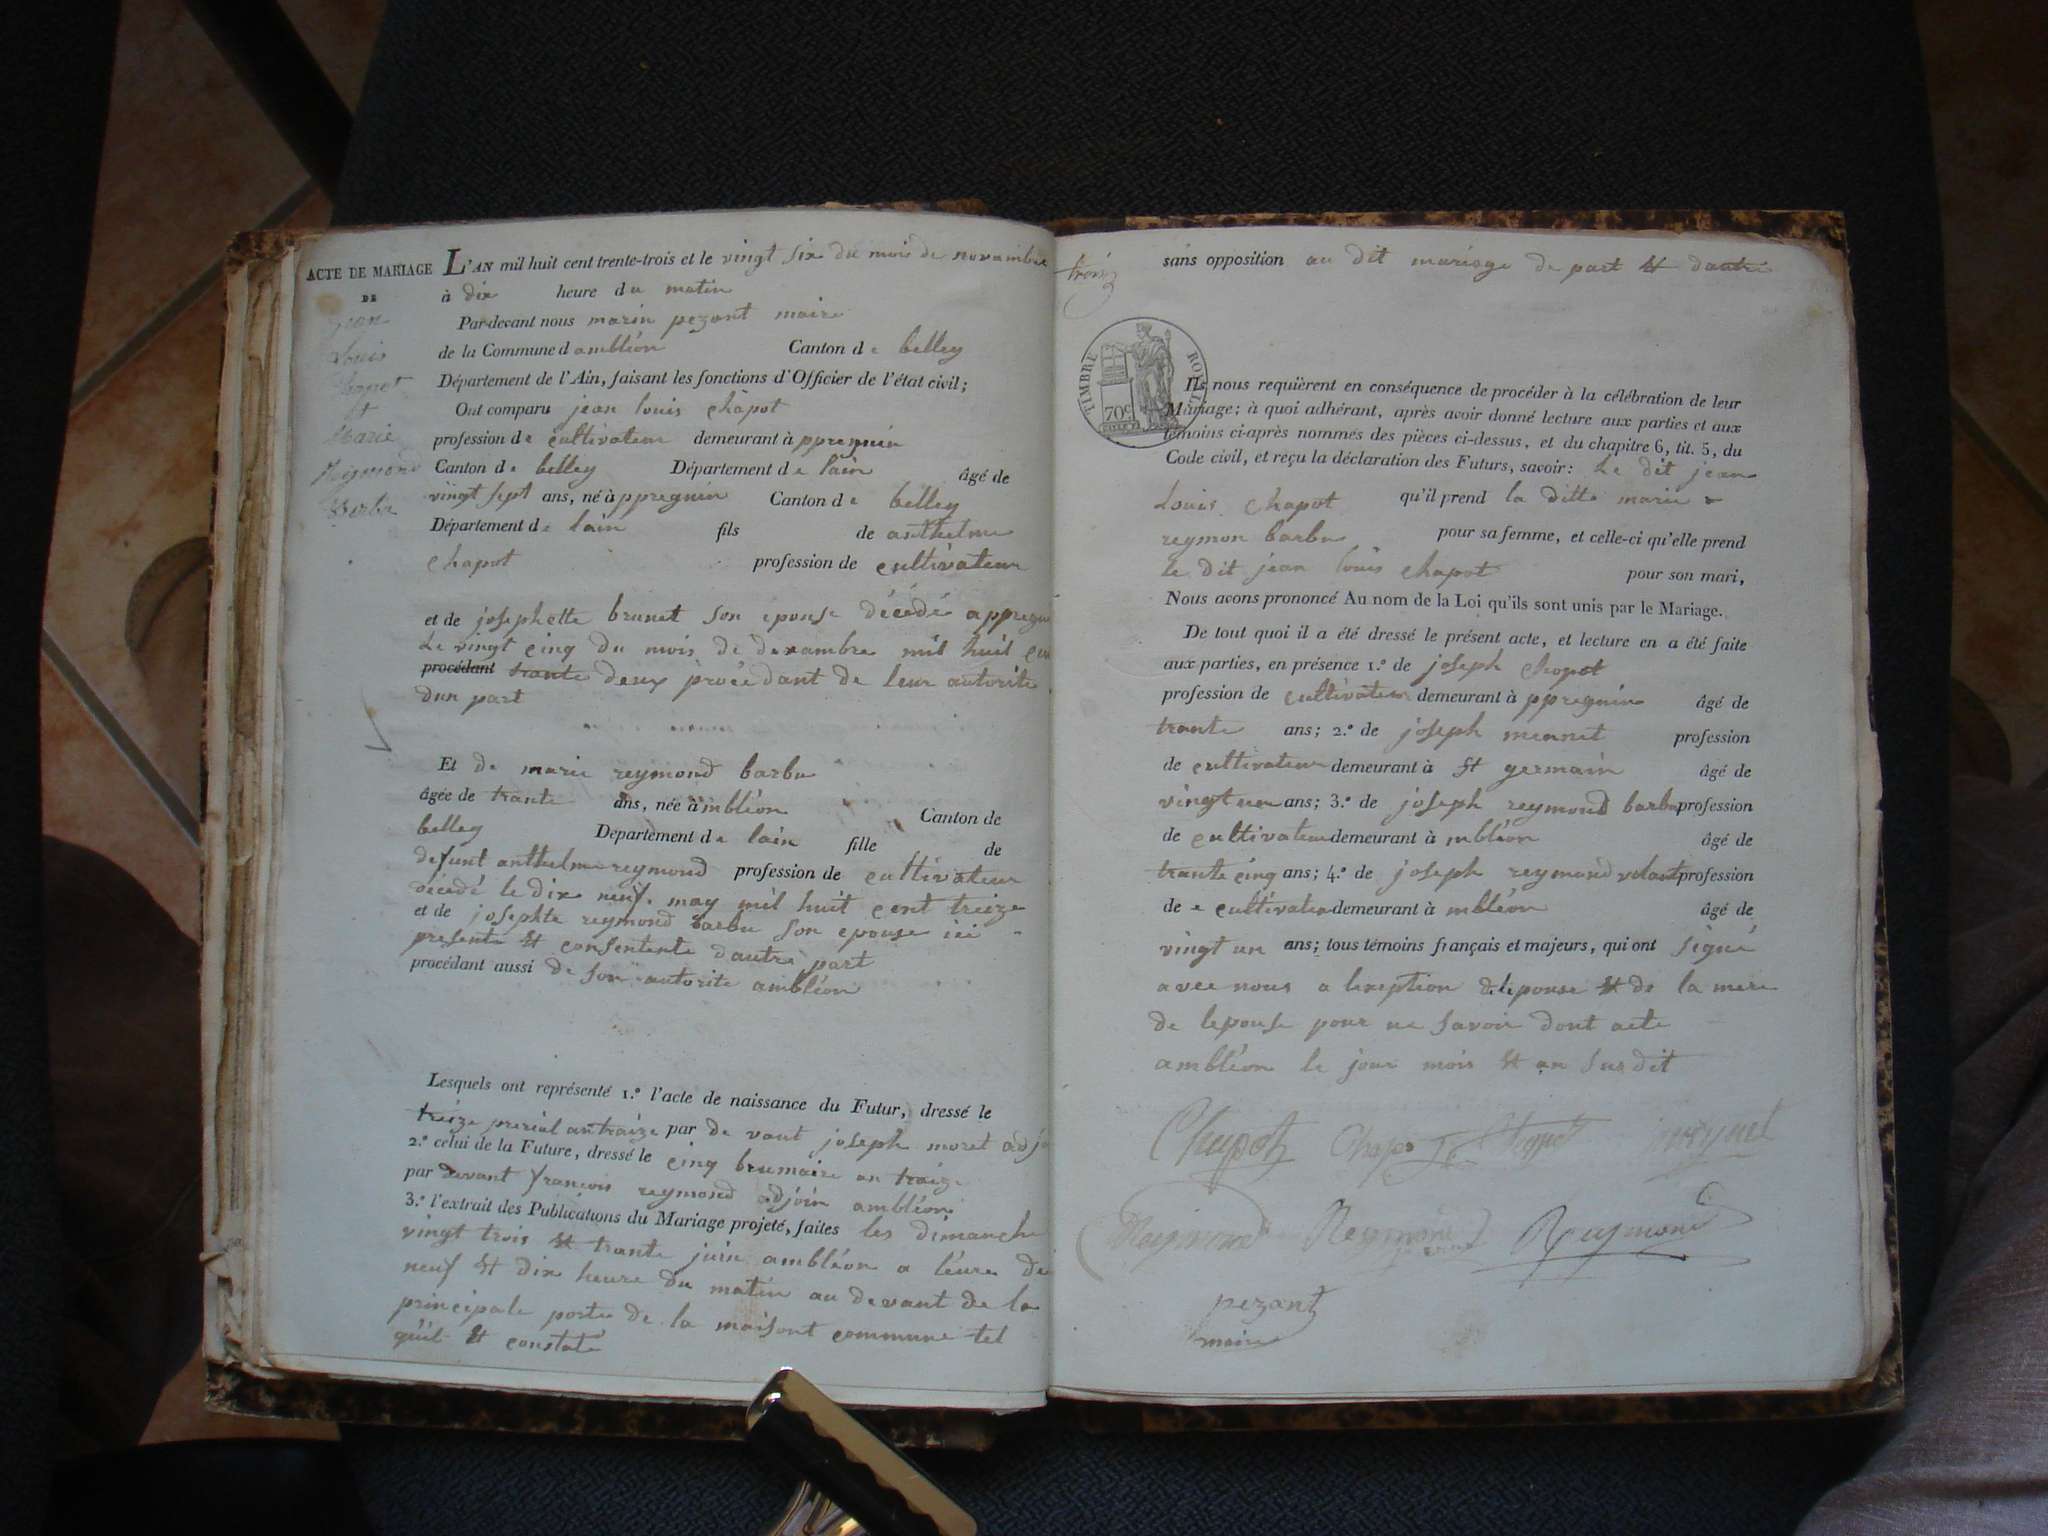 ACTE DE MARIAGE
DE
jean
Louis
et
Marie
Reymond
Barbu
L'AN mil huit cent trente-trois et le vingt six du mois de novambre
à dix heure du matin
Par-devant nous marin pezant maire
de la Commune d ambléon Canton de belley
Département de l'Ain, faisant les fonctions d'Officier de l'état civil;
Ont comparu jean louis chapot
profession de cultivateur demeurant à ppregnin
Canton de belley Département de lain âgé de
vingt sept ans, né à ppregnin Canton de belley
Département de lain fils de anthelme
chapot profession de cultivateur
et de josephette brunet son epouse décédé a ppregn
Le vingt cinq du mois de dexambre mil huil cen
procédant trante deux procédant de leur autorite
dun part
Et de marie reymond barbu
âgée de trante ans, née à mbléon Canton de
belley Departement de lain fille de
defunt anthelme reymond profession de cultivateur
décédé le dix neuf may mil huit cent treize
et de josephte reymond barbu son epouse ici
presente et consentente dautre part
procédant aussi de son autorite ambléon
Lesquels ont représenté 1.º l'acte de naissance du Futur, dressé le
treize prerial an traize par de vant joseph moret adjo
2.º celui de la Future, dressé le cinq brumaire an traize
par devant francois reymond adjoin ambléon
3.º l'extrait des Publications du Mariage projeté, faites les dimanche
vingt trois et trante juin ambléon a léure de
neuf et dix heure du matin au devant de la
principale porte de la maisont commune tel
quil et constate
trois
sans opposition au dit mariage de part et dautre
TIMBRE ROYAL
70c
Ils nous requièrent en conséquence de procéder à la célébration de leur
Mariage; à quoi adhérant, après avoir donné lecture aux parties et aux
témoins ci-après nommés des pièces ci-dessus, et du chapitre 6, tit. 5, du
Code civil, et reçu la déclaration des Futurs, savoir: Le dit jean
Louis chapot qu'il prend la ditte marie
reymon barbu pour sa femme, et celle-ci qu'elle prend
Le dit jean louis chapot pour son mari,
Nous avons prononcé Au nom de la Loi qu'ils sont unis par le Mariage.
De tout quoi il a été dressé le présent acte, et lecture en a été faite
aux parties, en présence 1.º de joseph chopot
profession de cultivateur demeurant à ppregnin âgé de
trante ans; 2.º de joseph meunet profession
de cultivateur demeurant à st germain âgé de
vingt un ans; 3.º de joseph reymond barbu profession
de cultivateur demeurant à mbléon âgé de
trante cinq ans; 4.º de joseph reymond volant profession
de cultivateur demeurant à mbléon âgé de
vingt un ans; tous témoins français et majeurs, qui ont signé
avec nous a lexeption delepouse et de la mere
de lepouse pour ne savoir dont acte
ambléon le jour mois et an sus dit
Chapot Chapot meynet
Reymond Reymond Reymond
pezant
maire